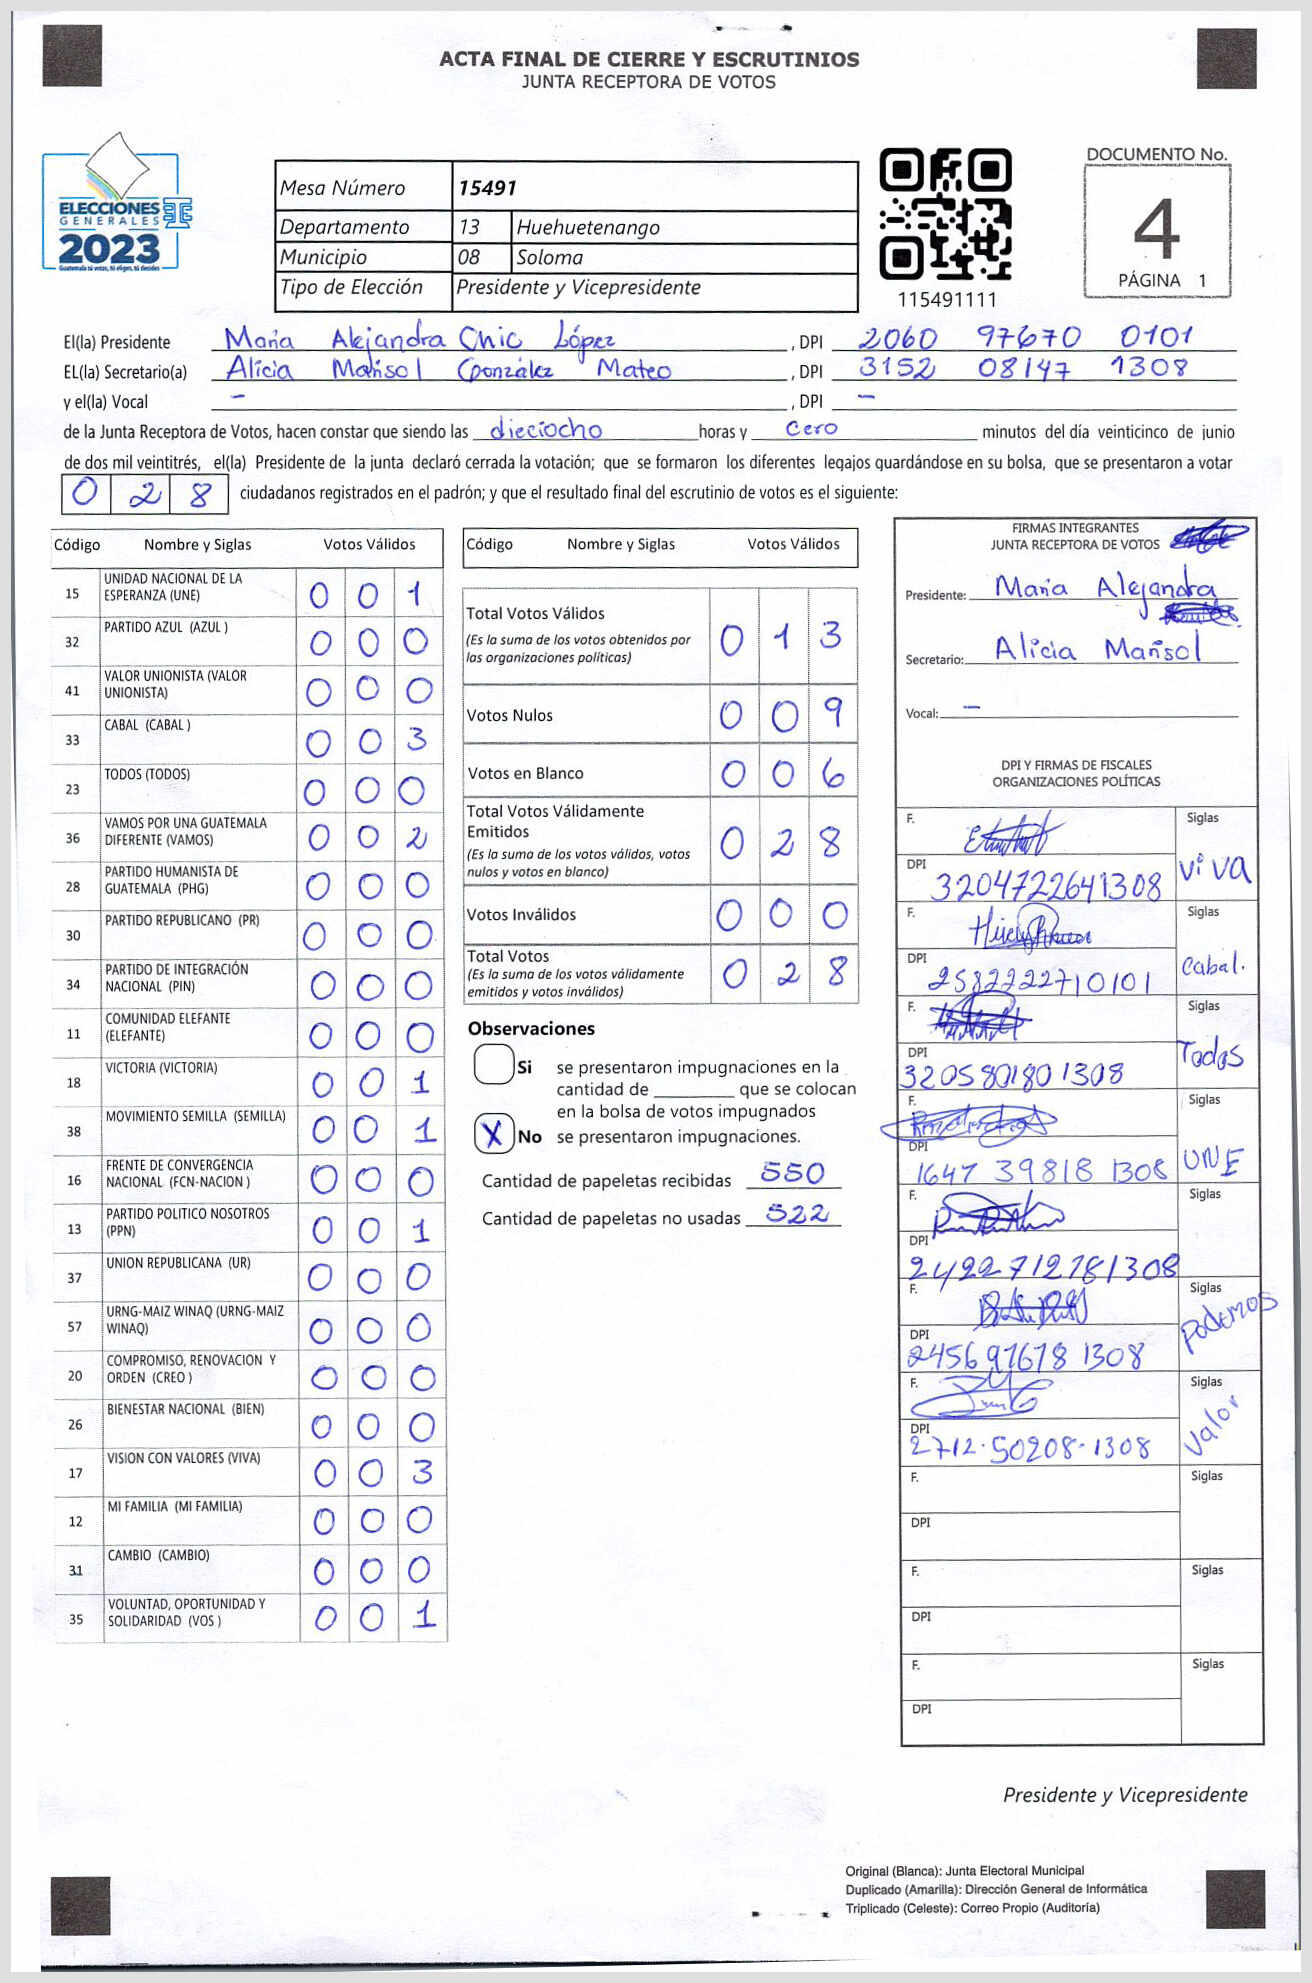 ACTA FINAL DE CIERRE Y ESCRUTINIOS
JUNTA RECEPTORA DE VOTOS
ELECCIONES
GENERALES
2023
Guatemala tú votas, tú eliges, tú decides
Mesa Número 15491
Departamento 13 Huehuetenango
Municipio 08 Soloma
Tipo de Elección Presidente y Vicepresidente
115491111
DOCUMENTO No.
4
PÁGINA 1
El(la) Presidente Maria Alejandra Chic López , DPI 2060 97670 0101
EL(la) Secretario(a) Alicia Marisol González Mateo , DPI 3152 08147 1308
y el(la) Vocal - , DPI -
de la Junta Receptora de Votos, hacen constar que siendo las dieciocho horas y cero minutos del día veinticinco de junio
de dos mil veintitrés, el(la) Presidente de la junta declaró cerrada la votación; que se formaron los diferentes legajos guardándose en su bolsa, que se presentaron a votar
0 2 8 ciudadanos registrados en el padrón; y que el resultado final del escrutinio de votos es el siguiente:
Código Nombre y Siglas Votos Válidos
15 UNIDAD NACIONAL DE LA ESPERANZA (UNE) 0 0 1
32 PARTIDO AZUL (AZUL ) 0 0 0
41 VALOR UNIONISTA (VALOR UNIONISTA) 0 0 0
33 CABAL (CABAL ) 0 0 3
23 TODOS (TODOS) 0 0 0
36 VAMOS POR UNA GUATEMALA DIFERENTE (VAMOS) 0 0 2
28 PARTIDO HUMANISTA DE GUATEMALA (PHG) 0 0 0
30 PARTIDO REPUBLICANO (PR) 0 0 0
34 PARTIDO DE INTEGRACIÓN NACIONAL (PIN) 0 0 0
11 COMUNIDAD ELEFANTE (ELEFANTE) 0 0 0
18 VICTORIA (VICTORIA) 0 0 1
38 MOVIMIENTO SEMILLA (SEMILLA) 0 0 1
16 FRENTE DE CONVERGENCIA NACIONAL (FCN-NACION ) 0 0 0
13 PARTIDO POLITICO NOSOTROS (PPN) 0 0 1
37 UNION REPUBLICANA (UR) 0 0 0
57 URNG-MAIZ WINAQ (URNG-MAIZ WINAQ) 0 0 0
20 COMPROMISO, RENOVACION Y ORDEN (CREO ) 0 0 0
26 BIENESTAR NACIONAL (BIEN) 0 0 0
17 VISION CON VALORES (VIVA) 0 0 3
12 MI FAMILIA (MI FAMILIA) 0 0 0
31 CAMBIO (CAMBIO) 0 0 0
35 VOLUNTAD, OPORTUNIDAD Y SOLIDARIDAD (VOS ) 0 0 1
Código Nombre y Siglas Votos Válidos
Total Votos Válidos 0 1 3
(Es la suma de los votos obtenidos por
las organizaciones políticas)
Votos Nulos 0 0 9
Votos en Blanco 0 0 6
Total Votos Válidamente
Emitidos 0 2 8
(Es la suma de los votos válidos, votos
nulos y votos en blanco)
Votos Inválidos 0 0 0
Total Votos 0 2 8
(Es la suma de los votos válidamente
emitidos y votos inválidos)
Observaciones
Si se presentaron impugnaciones en la
cantidad de ________ que se colocan
en la bolsa de votos impugnados
X No se presentaron impugnaciones.
Cantidad de papeletas recibidas 550
Cantidad de papeletas no usadas 522
FIRMAS INTEGRANTES
JUNTA RECEPTORA DE VOTOS
Presidente: Maria Alejandra
Secretario: Alicia Marisol
Vocal: -
DPI Y FIRMAS DE FISCALES
ORGANIZACIONES POLÍTICAS
F. Siglas
DPI 3204722641308 viva
F. Siglas
DPI 2582222710101 Cabal.
F. Siglas
DPI 3205801801308 Todos
F. Siglas
DPI 1647 39818 1308 UNE
F. Siglas
DPI 2422712781308
F. Siglas
DPI 2456 97678 1308 Podemos
F. Siglas
DPI 2712-50208-1308 Valor
F. Siglas
DPI
F. Siglas
DPI
F. Siglas
DPI
Presidente y Vicepresidente
Original (Blanca): Junta Electoral Municipal
Duplicado (Amarilla): Dirección General de Informática
Triplicado (Celeste): Correo Propio (Auditoría)